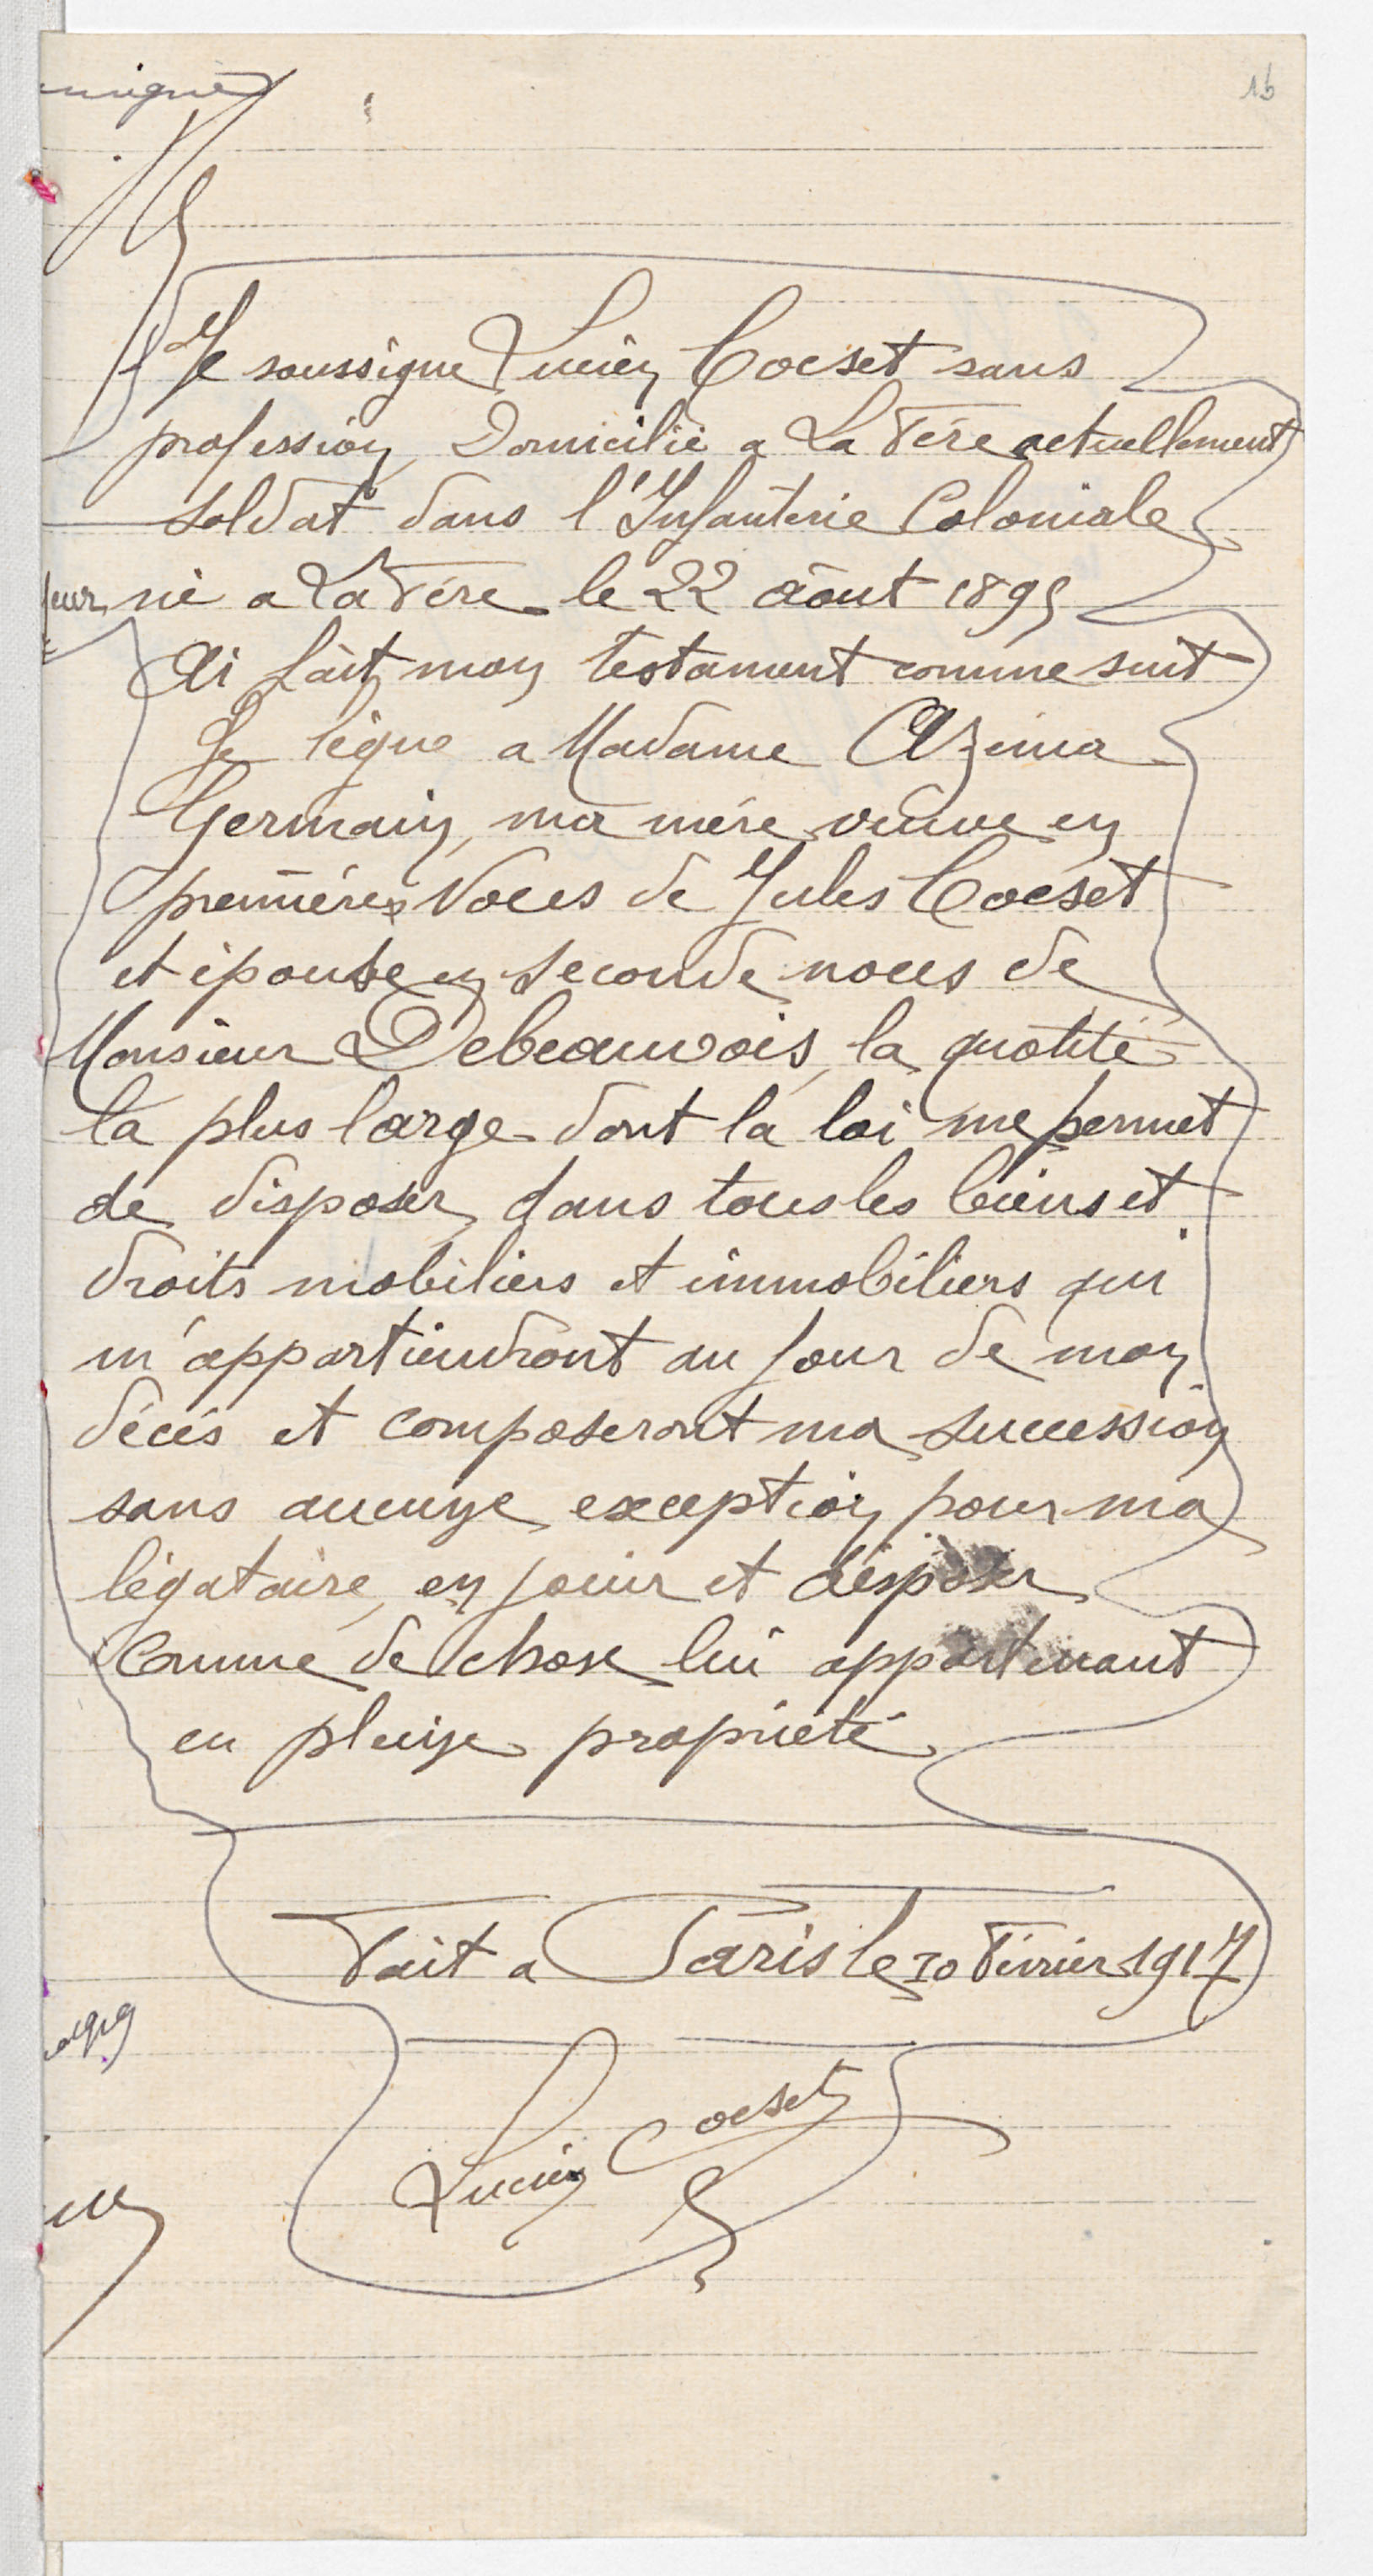 16
Je soussigne Lucien Cocset sans
profession, Domicilié a La Fére actuellement
soldat dans l'Infanterie Coloniale
né a La Fére le 22 aôut 1895
Ai fait mon testament comme suit
Je lègue a Madame Azema
Germain, ma mére, veuve en
premières Noces de Jules Cocset
et épouse en seconde noces de
Monsieur Debeauvois, la quotité
la plus large dont la loi me permet
de disposer, dans tous les biens et
droits mobiliers et immobiliers qui
m'appartiendront au jour de mon
décès et composeront ma succession
sans aucune exception, pour ma
légataire, en jouir et disposer
comme de chose lui appartenant
en pleine propriété
Fait a Paris le 10 Février 1917
Lucien Cocset